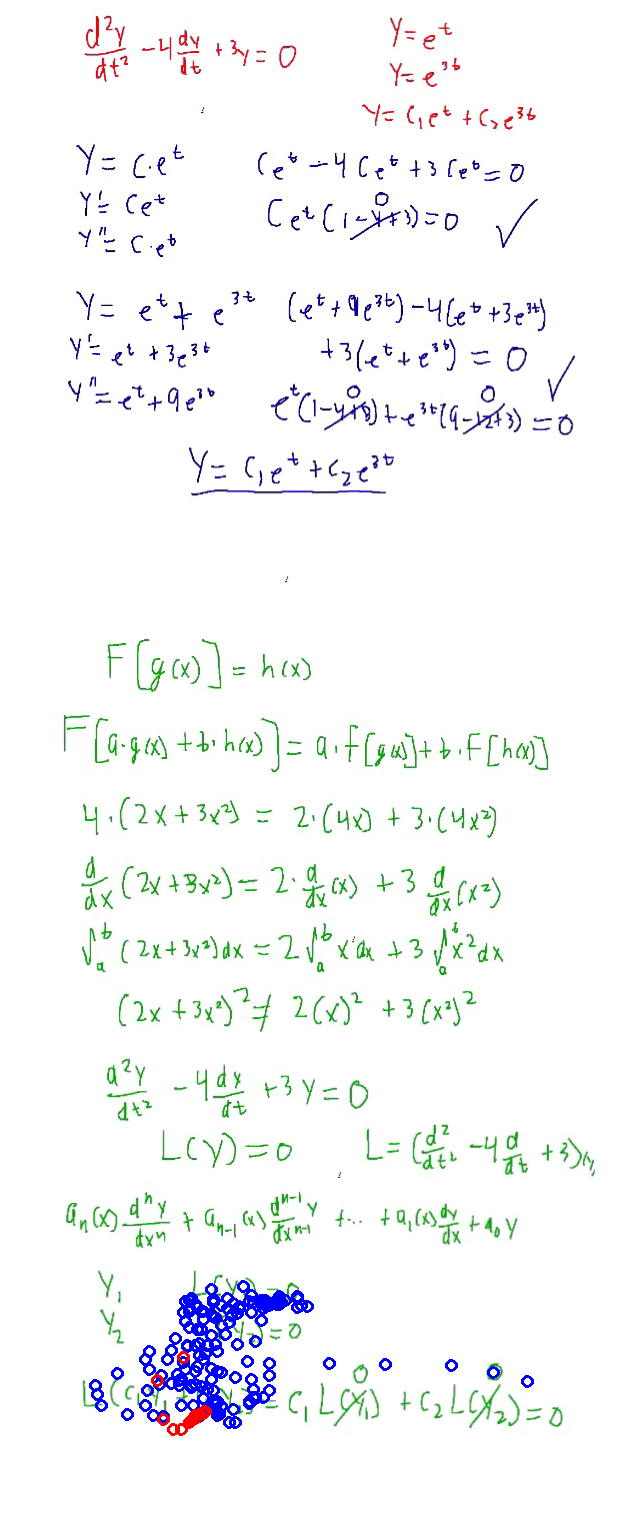 d²y/dt² - 4 dy/dt + 3y = 0
y = e^t
y = e^3t
y = C₁e^t + C₂e^3t
y = C·e^t
Ce^t - 4Ce^t + 3Ce^t = 0
y' = Ce^t
Ce^t(1-4+3) = 0 ✓
0
y'' = C·e^t
y = e^t + e^3t
(e^t + 9e^3t) - 4(e^t + 3e^3t)
y' = e^t + 3e^3t
+3(e^t + e^3t) = 0 ✓
y'' = e^t + 9e^3t
0 0
e^t(1-4+3) + e^3t(9-12+3) = 0
y = C₁e^t + C₂e^3t
F[g(x)] = h(x)
F[a·g(x) + b·h(x)] = a·F[g(x)] + b·F[h(x)]
4·(2x + 3x²) = 2·(4x) + 3·(4x²)
d/dx (2x + 3x²) = 2·d/dx (x) + 3 d/dx (x²)
∫ₐᵇ (2x + 3x²)dx = 2∫ₐᵇ x dx + 3∫ₐᵇ x² dx
(2x + 3x²)² ≠ 2(x)² + 3(x²)²
d²y/dt² - 4 dy/dt + 3y = 0
L(y) = 0
L = (d²/dt² - 4 d/dt + 3)(y)
aₙ(x) dⁿy/dxⁿ + aₙ₋₁(x) dⁿ⁻¹y/dxⁿ⁻¹ + ... + a₁(x) dy/dx + a₀y
y₁
y₂
= 0
0 0
= C₁L(y₁) + C₂L(y₂) = 0